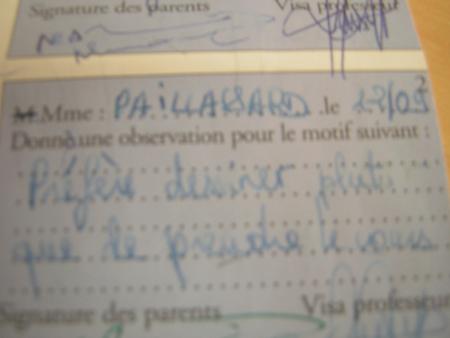 Signature des parents Visa professeur
2
M. Mme : PAILLASSARD .le 17/09
Donne une observation pour le motif suivant :
Préfère dessiner plutôt
que de prendre le cours
Signature des parents Visa professeur